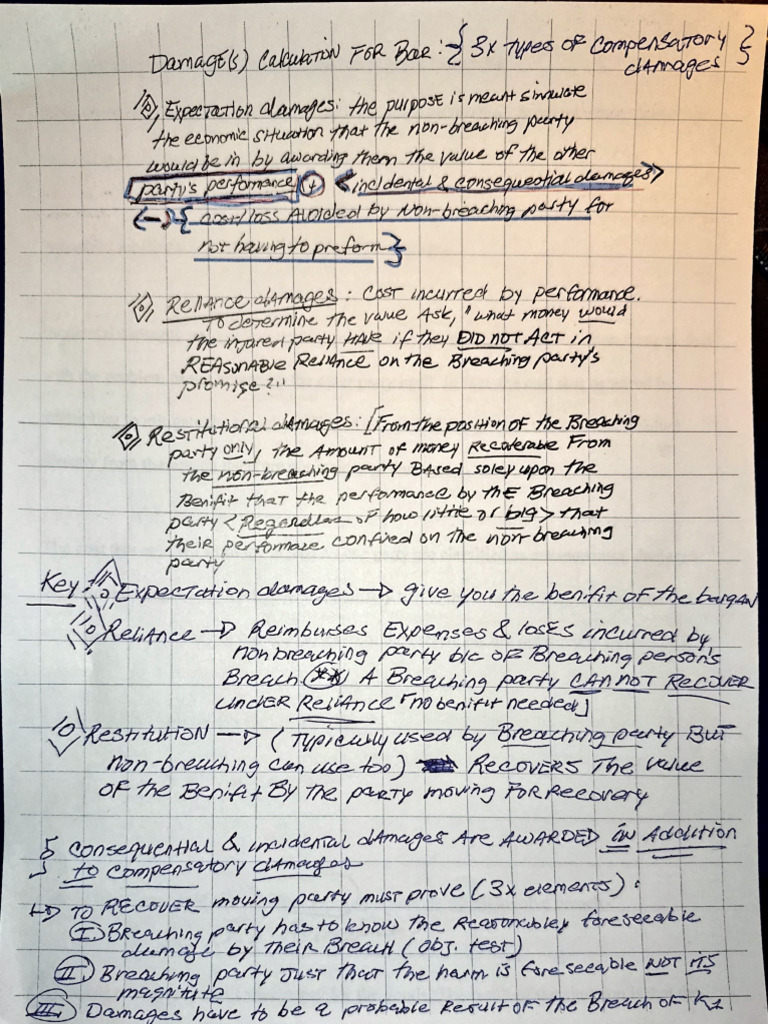 Damage(s) Calculation For Bar: { 3x types of Compensatory damages }
Expectaction damages: the purpose is meant simulate
the economic situation that the non-breaching party
would be in by awarding them the value of the other
party's performance + <incidental & consequential damages>
<-> { cost/loss Avoided by Non-breaching party for
not having to preform }
Reliance damages: Cost incurred by performance.
To determine the value Ask, "what money would
the injured party HAVE if they DID NOT ACT in
REASonABLE RELiAnce on the Breaching party's
promise?"
Restitutional dAmages: [From the position of the Breaching
party only, the Amount of money Recoverable From
the non-breaching party BAsed soley upon the
Benifit that the performance by thE Breaching
party <Regardless of how little or big> that
their performace confired on the non-breaching
party
Key Expectation damages → give you the benifit of the bargan
Reliance → Reimburses Expenses & loses incurred by
nonbreaching party b/c of Breaching person's
Breach (**) A Breaching party CAN NOT RECOVER
under Reliance "no benifit needed]
Restitution → (Typiclly used by Breaching party But
non-breaching can use too) RECOVERS The value
OF the BeniFit By the party moving For Recovery
Consequential & incidental dAmages Are AWARDED in Addition
to compensatory damages
→ TO RECOVER moving party must prove (3x elements):
I. Breaching party has to know the Reasonabley foreseeable
damage by their Breach (obj. test)
II. Breaching party Just that the harm is foreseeable NOT ITS
magnitute
III. Damages have to be a probable Result of the Breach of K